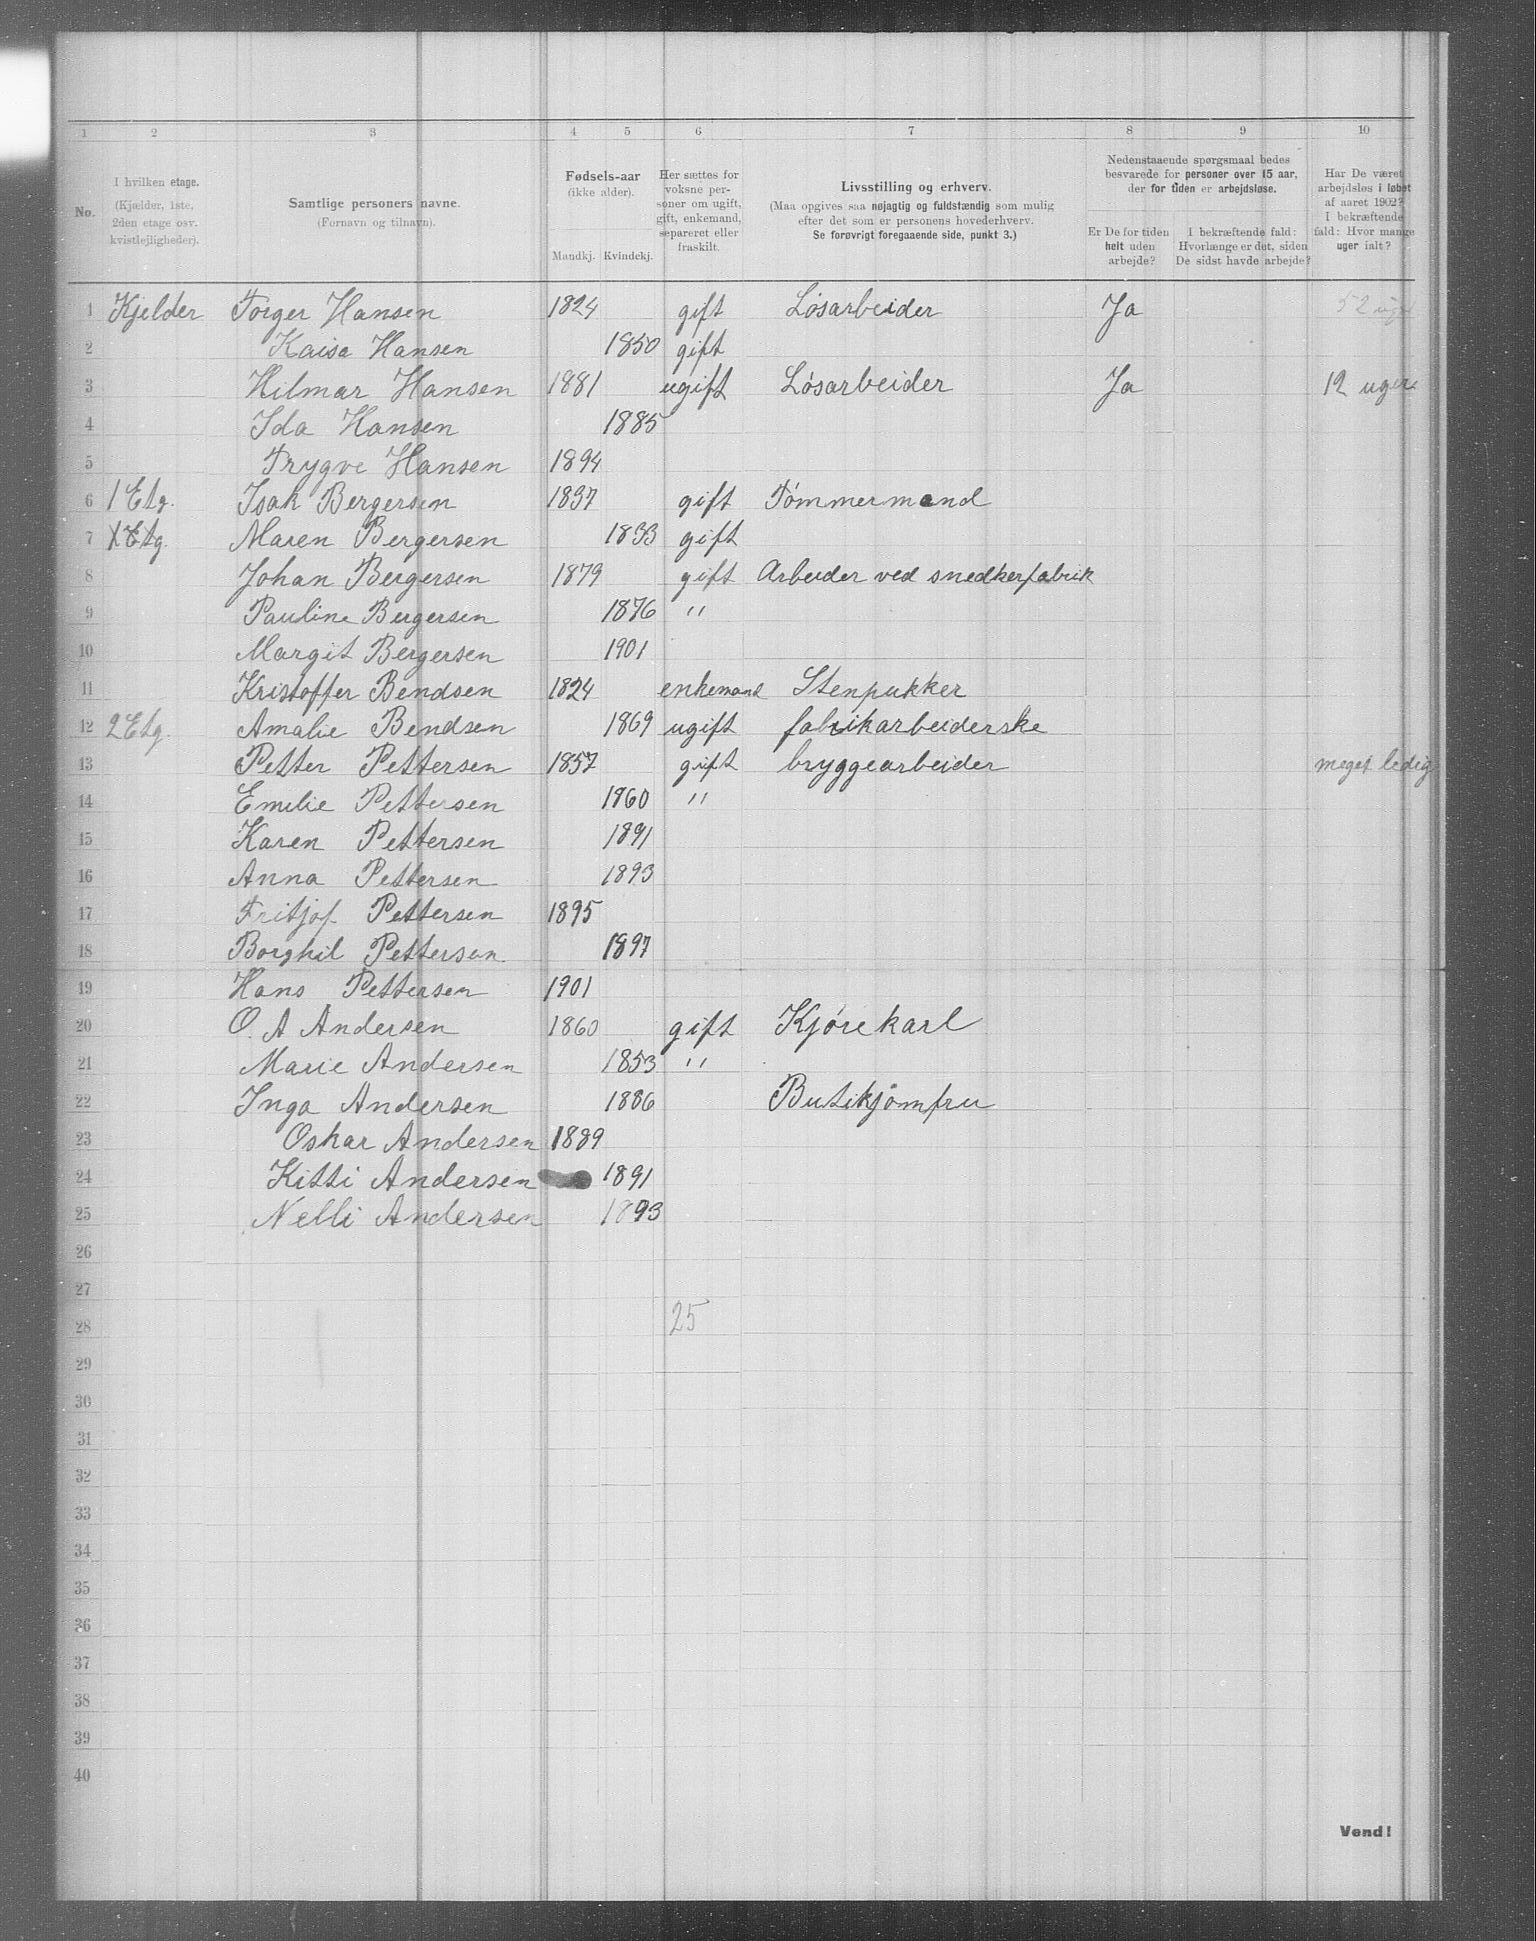 1 2 3 4 5 6 7 8 9 10
No.
I hvilken etage.
(Kjælder, 1ste,
2den etage osv.
kvistlejligheder).
Samtlige personers navne.
(Fornavn og tilnavn).
Fødsels-aar
(ikke alder).
Mandkj. Kvindekj.
Her sættes for
voksne per-
soner om ugift,
gift, enkemand,
separeret eller
fraskilt.
Livsstilling og erhverv.
(Maa opgives saa nøjagtig og fuldstændig som mulig
efter det som er personens hovederhverv.
Se forøvrigt foregaaende side, punkt 3.)
Nedenstaaende spørgsmaal bedes
besvarede for personer over 15 aar,
der for tiden er arbejdsløse.
Er De for tiden
helt uden
arbejde?
I bekræftende fald:
Hvorlænge er det, siden
De sidst havde arbejde?
Har De været
arbejdsløs i løbet
af aaret 1902?
I bekræftende
fald: Hvor mange
uger ialt?
1 Kjelder Torger Hansen 1824 gift Løsarbeider Ja 52 uger
2 Kaisa Hansen 1850 gift
3 Hilmar Hansen 1881 ugift Løsarbeider Ja 12 uger
4 Ida Hansen 1885
5 Trygve Hansen 1894
6 1 Etg. Isak Bergersen 1837 gift Tømmermand
7 1 Etg. Maren Bergersen 1833 gift
8 Johan Bergersen 1879 gift Arbeider ved snedkerfabrik
9 Pauline Bergersen 1876 "
10 Margit Bergersen 1901
11 Kristoffer Bendsen 1824 enkemand Stenpukker
12 2 Etg. Amalie Bendsen 1869 ugift fabrikarbeiderske
13 Petter Pettersen 1857 gift bryggearbeider meget ledig
14 Emilie Pettersen 1860 "
15 Karen Pettersen 1891
16 Anna Pettersen 1893
17 Fritjof Pettersen 1895
18 Borghil Pettersen 1897
19 Hans Pettersen 1901
20 O. A Andersen 1860 gift Kjørekarl
21 Marie Andersen 1853 "
22 Inga Andersen 1886 Butikjomfru
23 Oskar Andersen 1889
24 Kitti Andersen 1891
25 Nelli Andersen 1893
26
27
28 25
29
30
31
32
33
34
35
36
37
38
39
40
Vend!